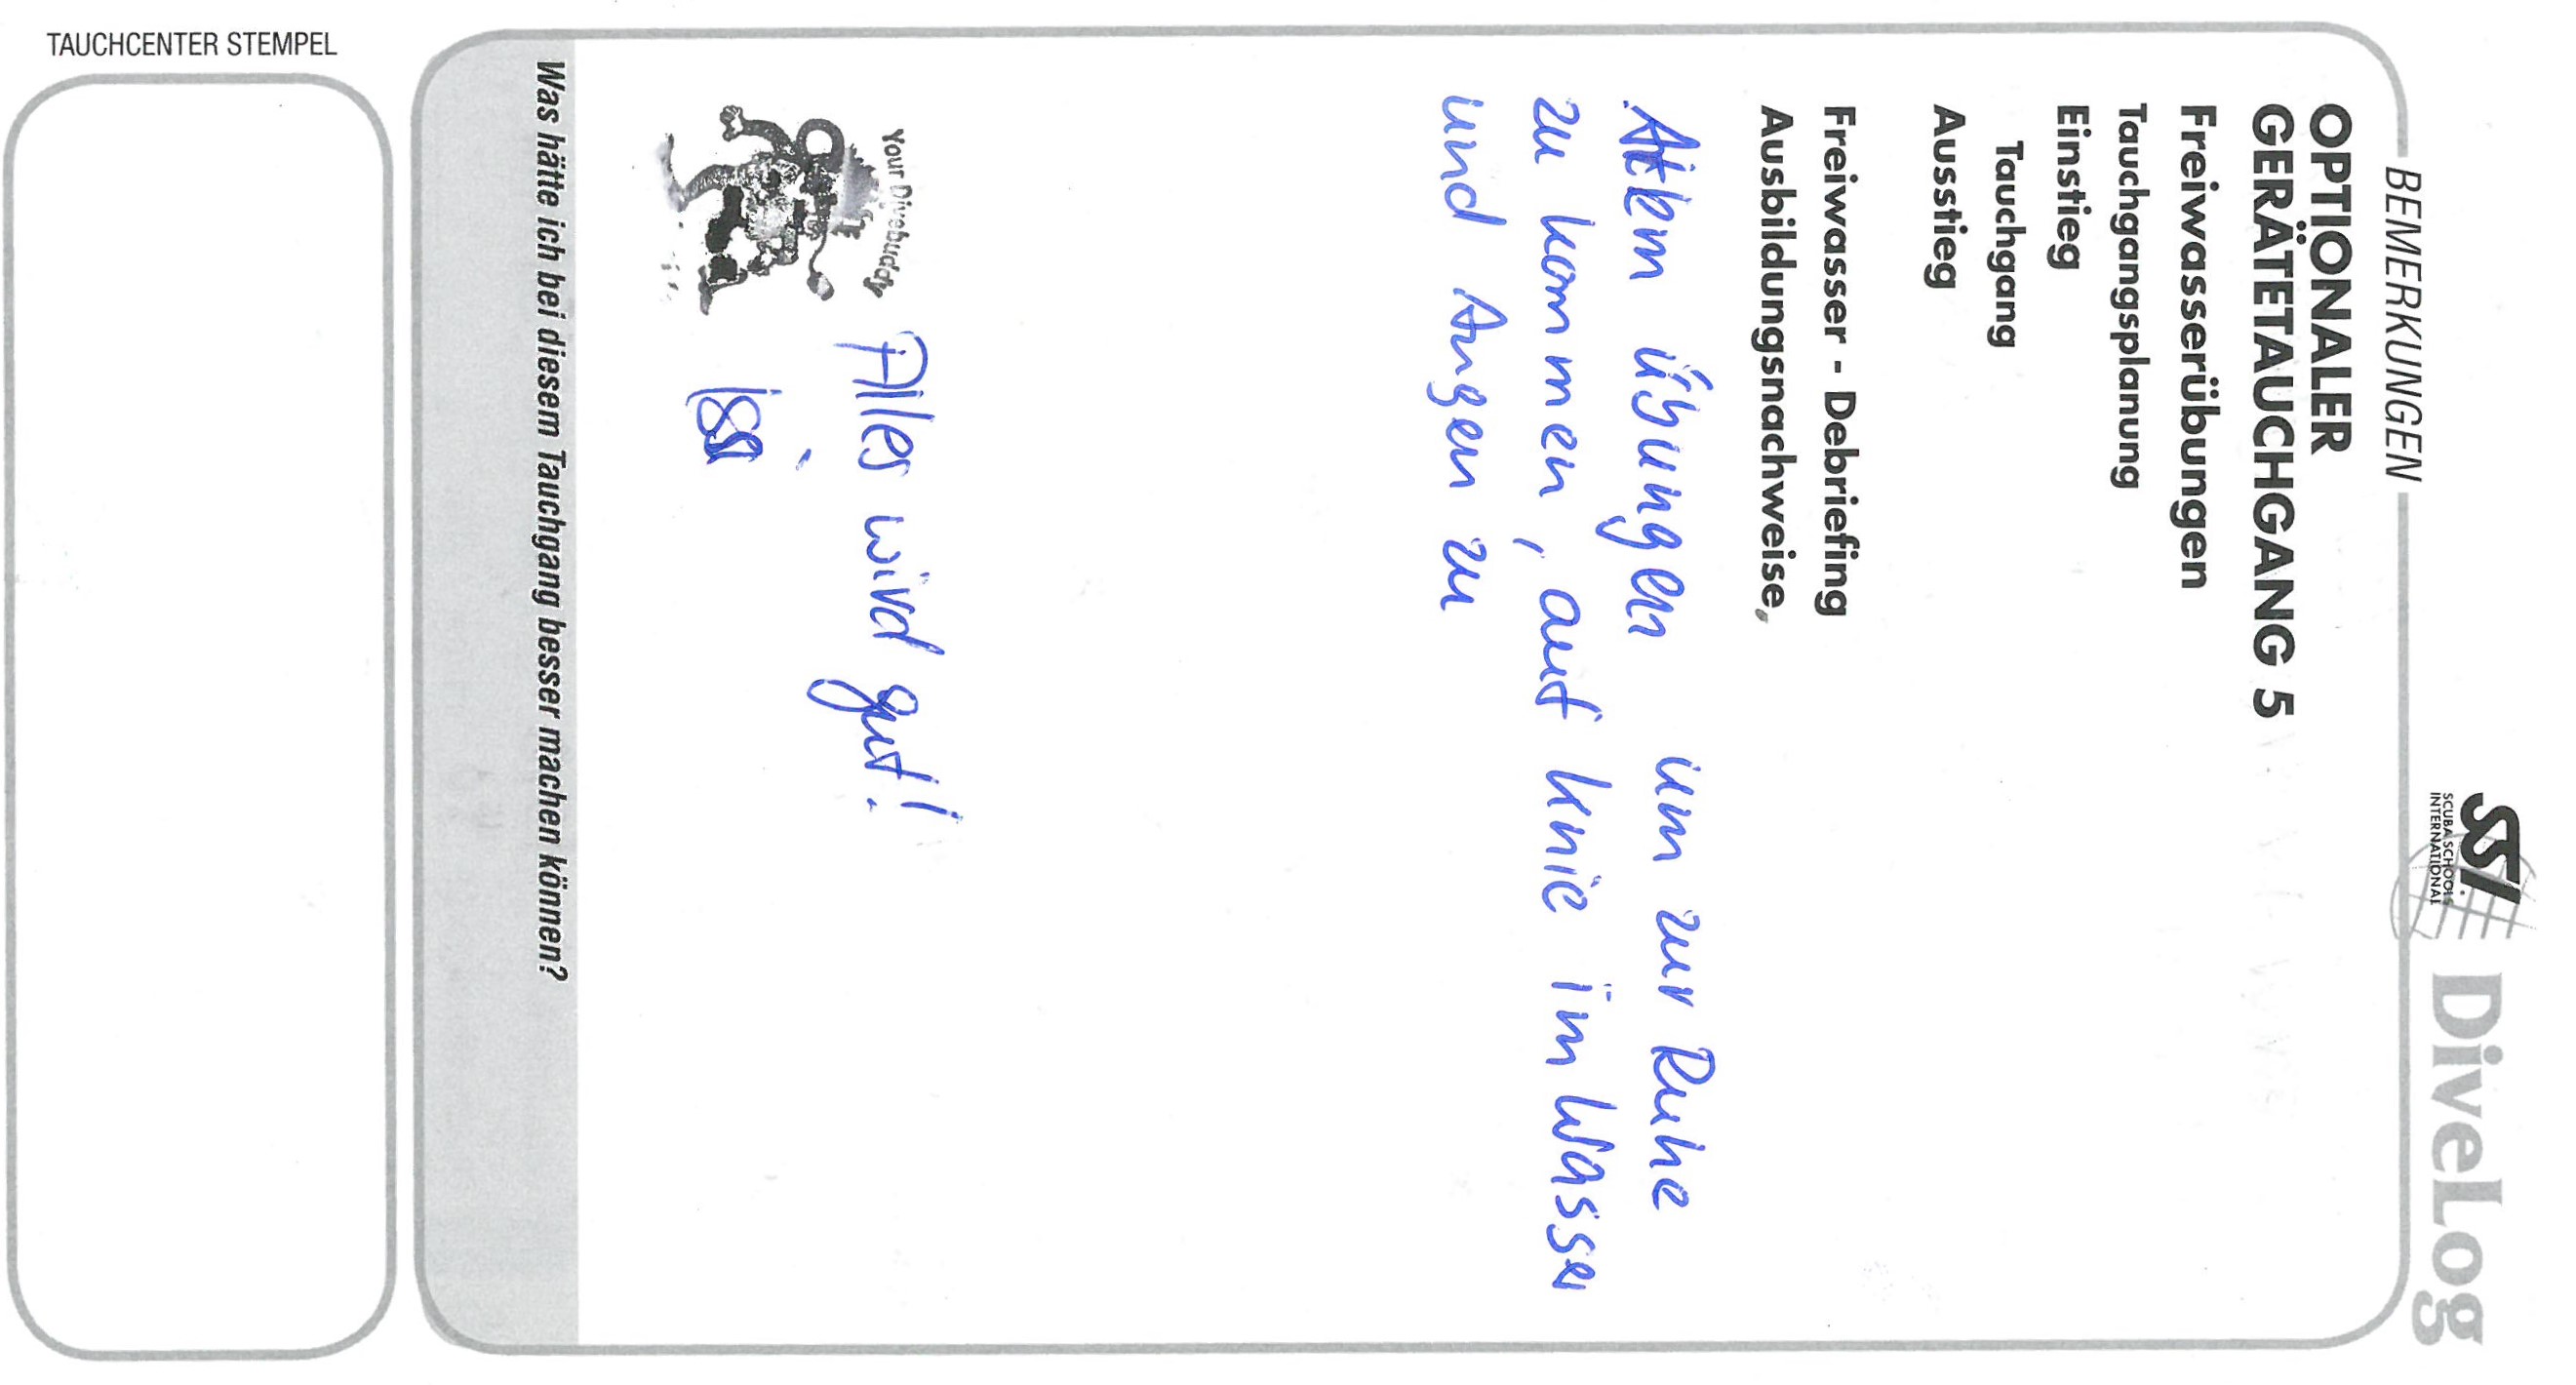 BEMERKUNGEN
SSI
SCUBA SCHOOLS
INTERNATIONAL
DiveLog
OPTIONALER
GERÄTETAUCHGANG 5
Freiwasserübungen
Tauchgangsplanung
Einstieg
Tauchgang
Ausstieg
Freiwasser - Debriefing
Ausbildungsnachweise,
Atem übungen um zur Ruhe
zu kommen, auf Knie im Wasser
und Augen zu
Your Divebuddy
Alles wird gut!
Was hätte ich bei diesem Tauchgang besser machen können?
TAUCHCENTER STEMPEL